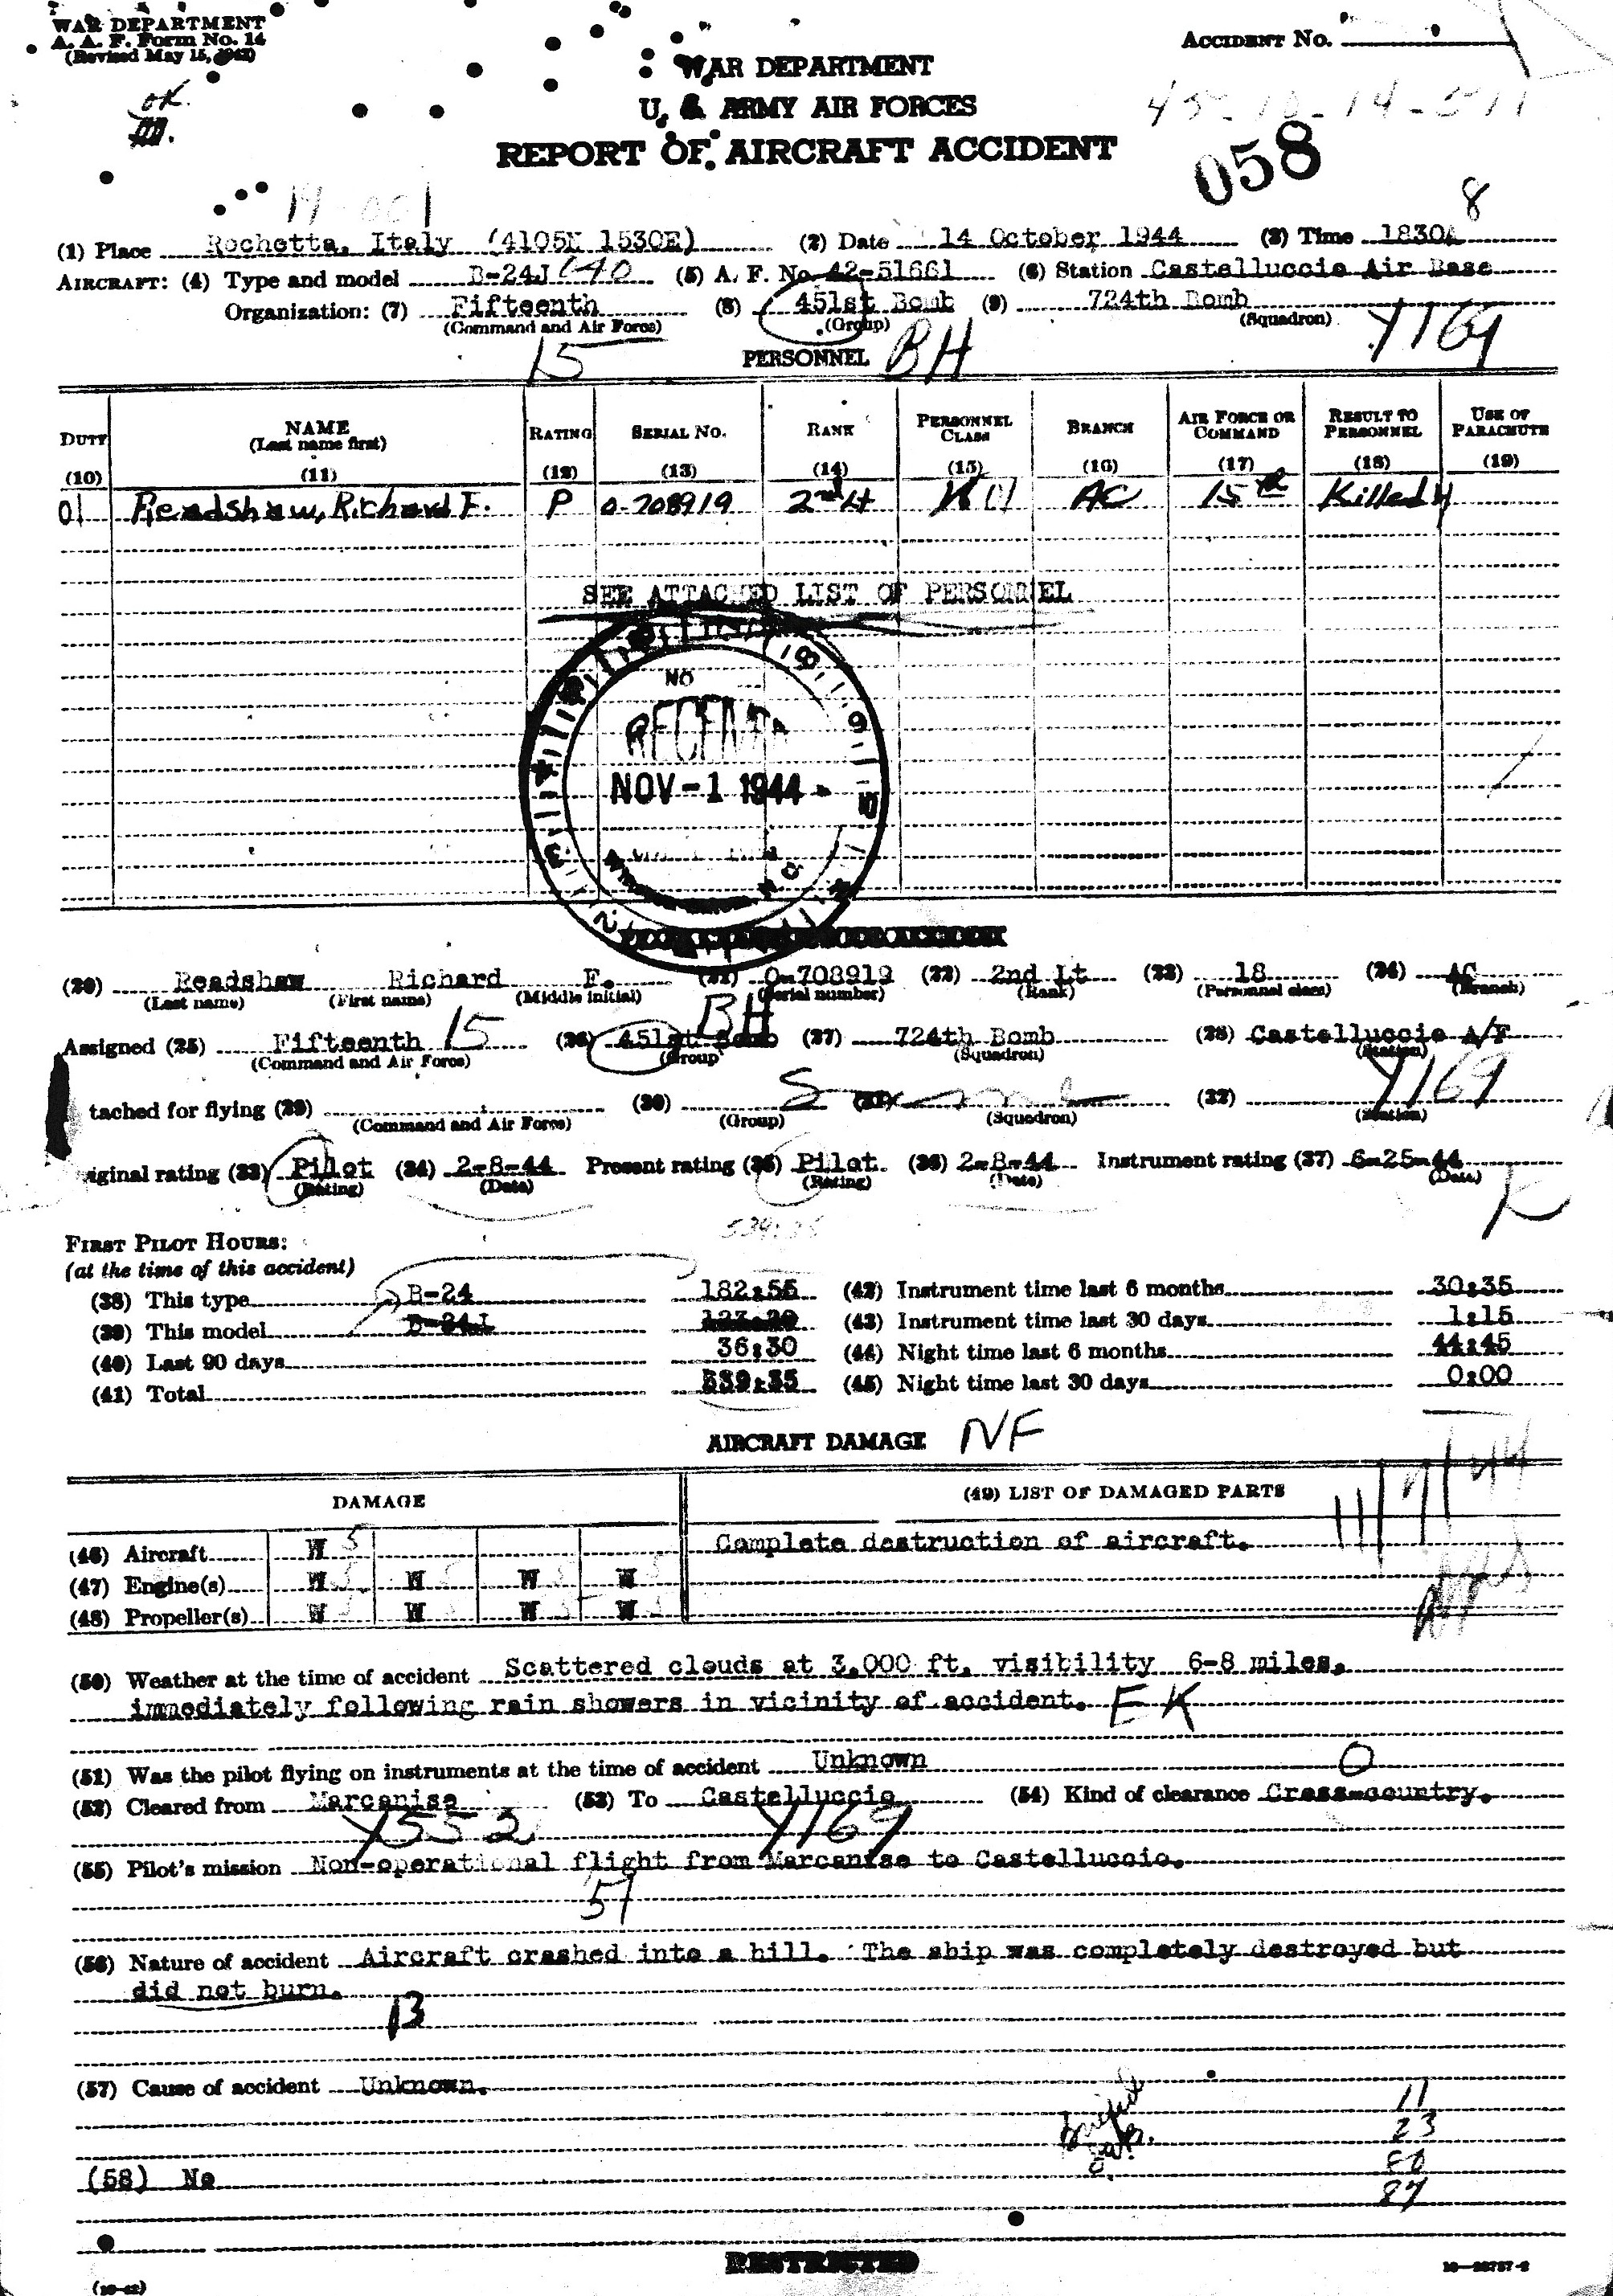 WAR DEPARTMENT
A. A. F. Form No. 14
(Revised May 15, 1942)
ACCIDENT No.
OK.
WAR DEPARTMENT
U. S. ARMY AIR FORCES
REPORT OF AIRCRAFT ACCIDENT
058
8
(1) Place Rochetta, Italy (4105N 1530E) (2) Date 14 October 1944 (3) Time 1830A
AIRCRAFT: (4) Type and model B-24J (5) A. F. No. 42-51661 (6) Station Castelluccio Air Base
Organization: (7) Fifteenth (8) 451st Bomb (9) 724th Bomb
(Command and Air Force) (Group) (Squadron)
15 PERSONNEL BH Y169
DUTY NAME (Last name first) RATING SERIAL No. RANK PERSONNEL CLASS BRANCH AIR FORCE OR COMMAND RESULT TO PERSONNEL USE OF PARACHUTE
(10) (11) (12) (13) (14) (15) (16) (17) (18) (19)
01 Readshaw, Richard F. P 0-708919 2nd Lt AC 15th Killed
SEE ATTACHED LIST OF PERSONNEL
NO
RECEIVED
NOV-1 1944
(20) Readshaw Richard F. (21) O-708919 (22) 2nd Lt (23) 18 (24) AC
(Last name) (First name) (Middle initial) (Serial number) (Rank) (Personnel class) (Branch)
BH
Assigned (25) Fifteenth 15 (26) 451st Bomb (27) 724th Bomb (28) Castelluccio A/F
(Command and Air Force) (Group) (Squadron) (Station)
Y169
tached for flying (29) (30) (31) (32)
(Command and Air Force) (Group) (Squadron) (Station)
iginal rating (33) Pilot (34) 2-8-44 Present rating (35) Pilot (36) 2-8-44 Instrument rating (37) 6-25-44
(Rating) (Date) (Rating) (Date) (Date)
FIRST PILOT HOURS:
(at the time of this accident)
(38) This type B-24 182:55 (42) Instrument time last 6 months 30:35
(39) This model B-24J (43) Instrument time last 30 days 1:15
(40) Last 90 days 36:30 (44) Night time last 6 months 44:45
(41) Total 539:35 (45) Night time last 30 days 0:00
AIRCRAFT DAMAGE NF
DAMAGE (49) LIST OF DAMAGED PARTS
(46) Aircraft W 5 Complete destruction of aircraft.
(47) Engine(s) W W W W
(48) Propeller(s) W W W W
(50) Weather at the time of accident Scattered clouds at 3,000 ft, visibility 6-8 miles,
immediately following rain showers in vicinity of accident. EK
(51) Was the pilot flying on instruments at the time of accident Unknown O
(52) Cleared from Marcanise (53) To Castelluccio (54) Kind of clearance Cross-country.
Y552 Y169
(55) Pilot's mission Non-operational flight from Marcanise to Castelluccio.
51
(56) Nature of accident Aircraft crashed into a hill. The ship was completely destroyed but
did not burn.
B
(57) Cause of accident Unknown.
11
23
80
87
(58) No
RESTRICTED
(10-42)
16-28757-2